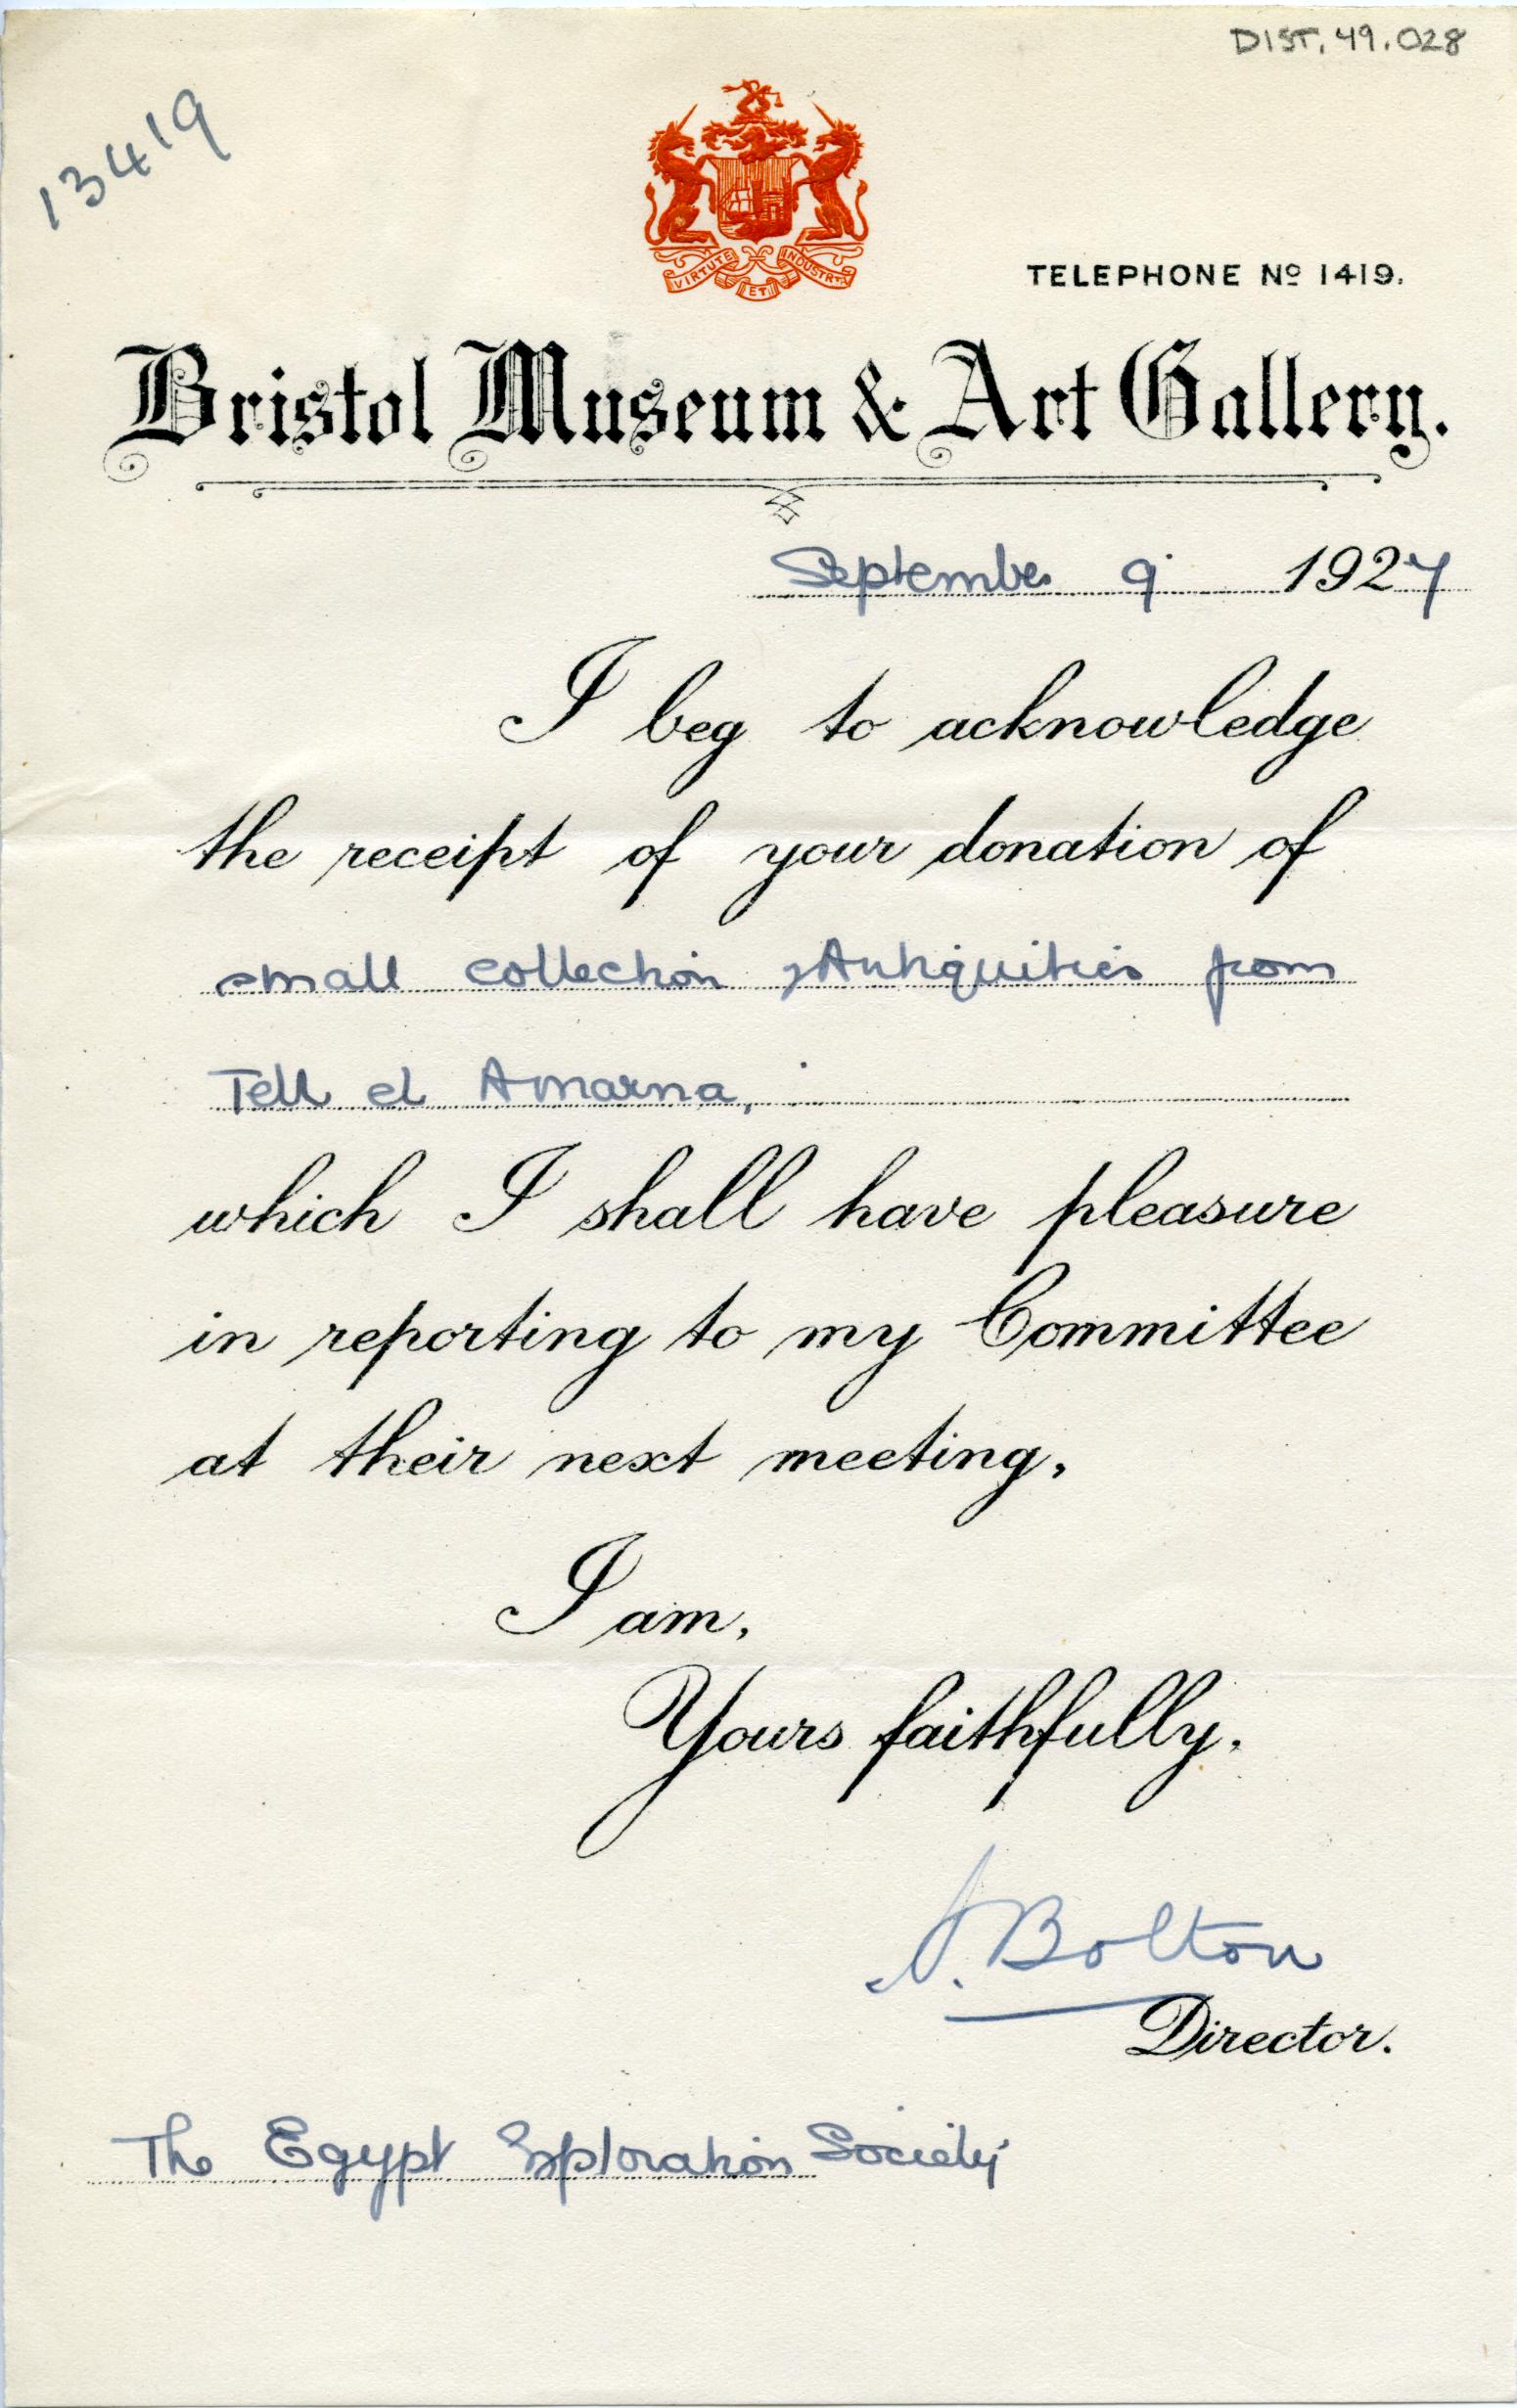 DIST.49.028
13419
VIRTUTE ET INDUSTRIA
TELEPHONE Nº 1419.
Bristol Museum & Art Gallery.
September 9 1927
I beg to acknowledge
the receipt of your donation of
small collection of Antiquities from
Tell el Amarna,
which I shall have pleasure
in reporting to my Committee
at their next meeting,
I am,
Yours faithfully,
H. Bolton
Director.
The Egypt Exploration Society